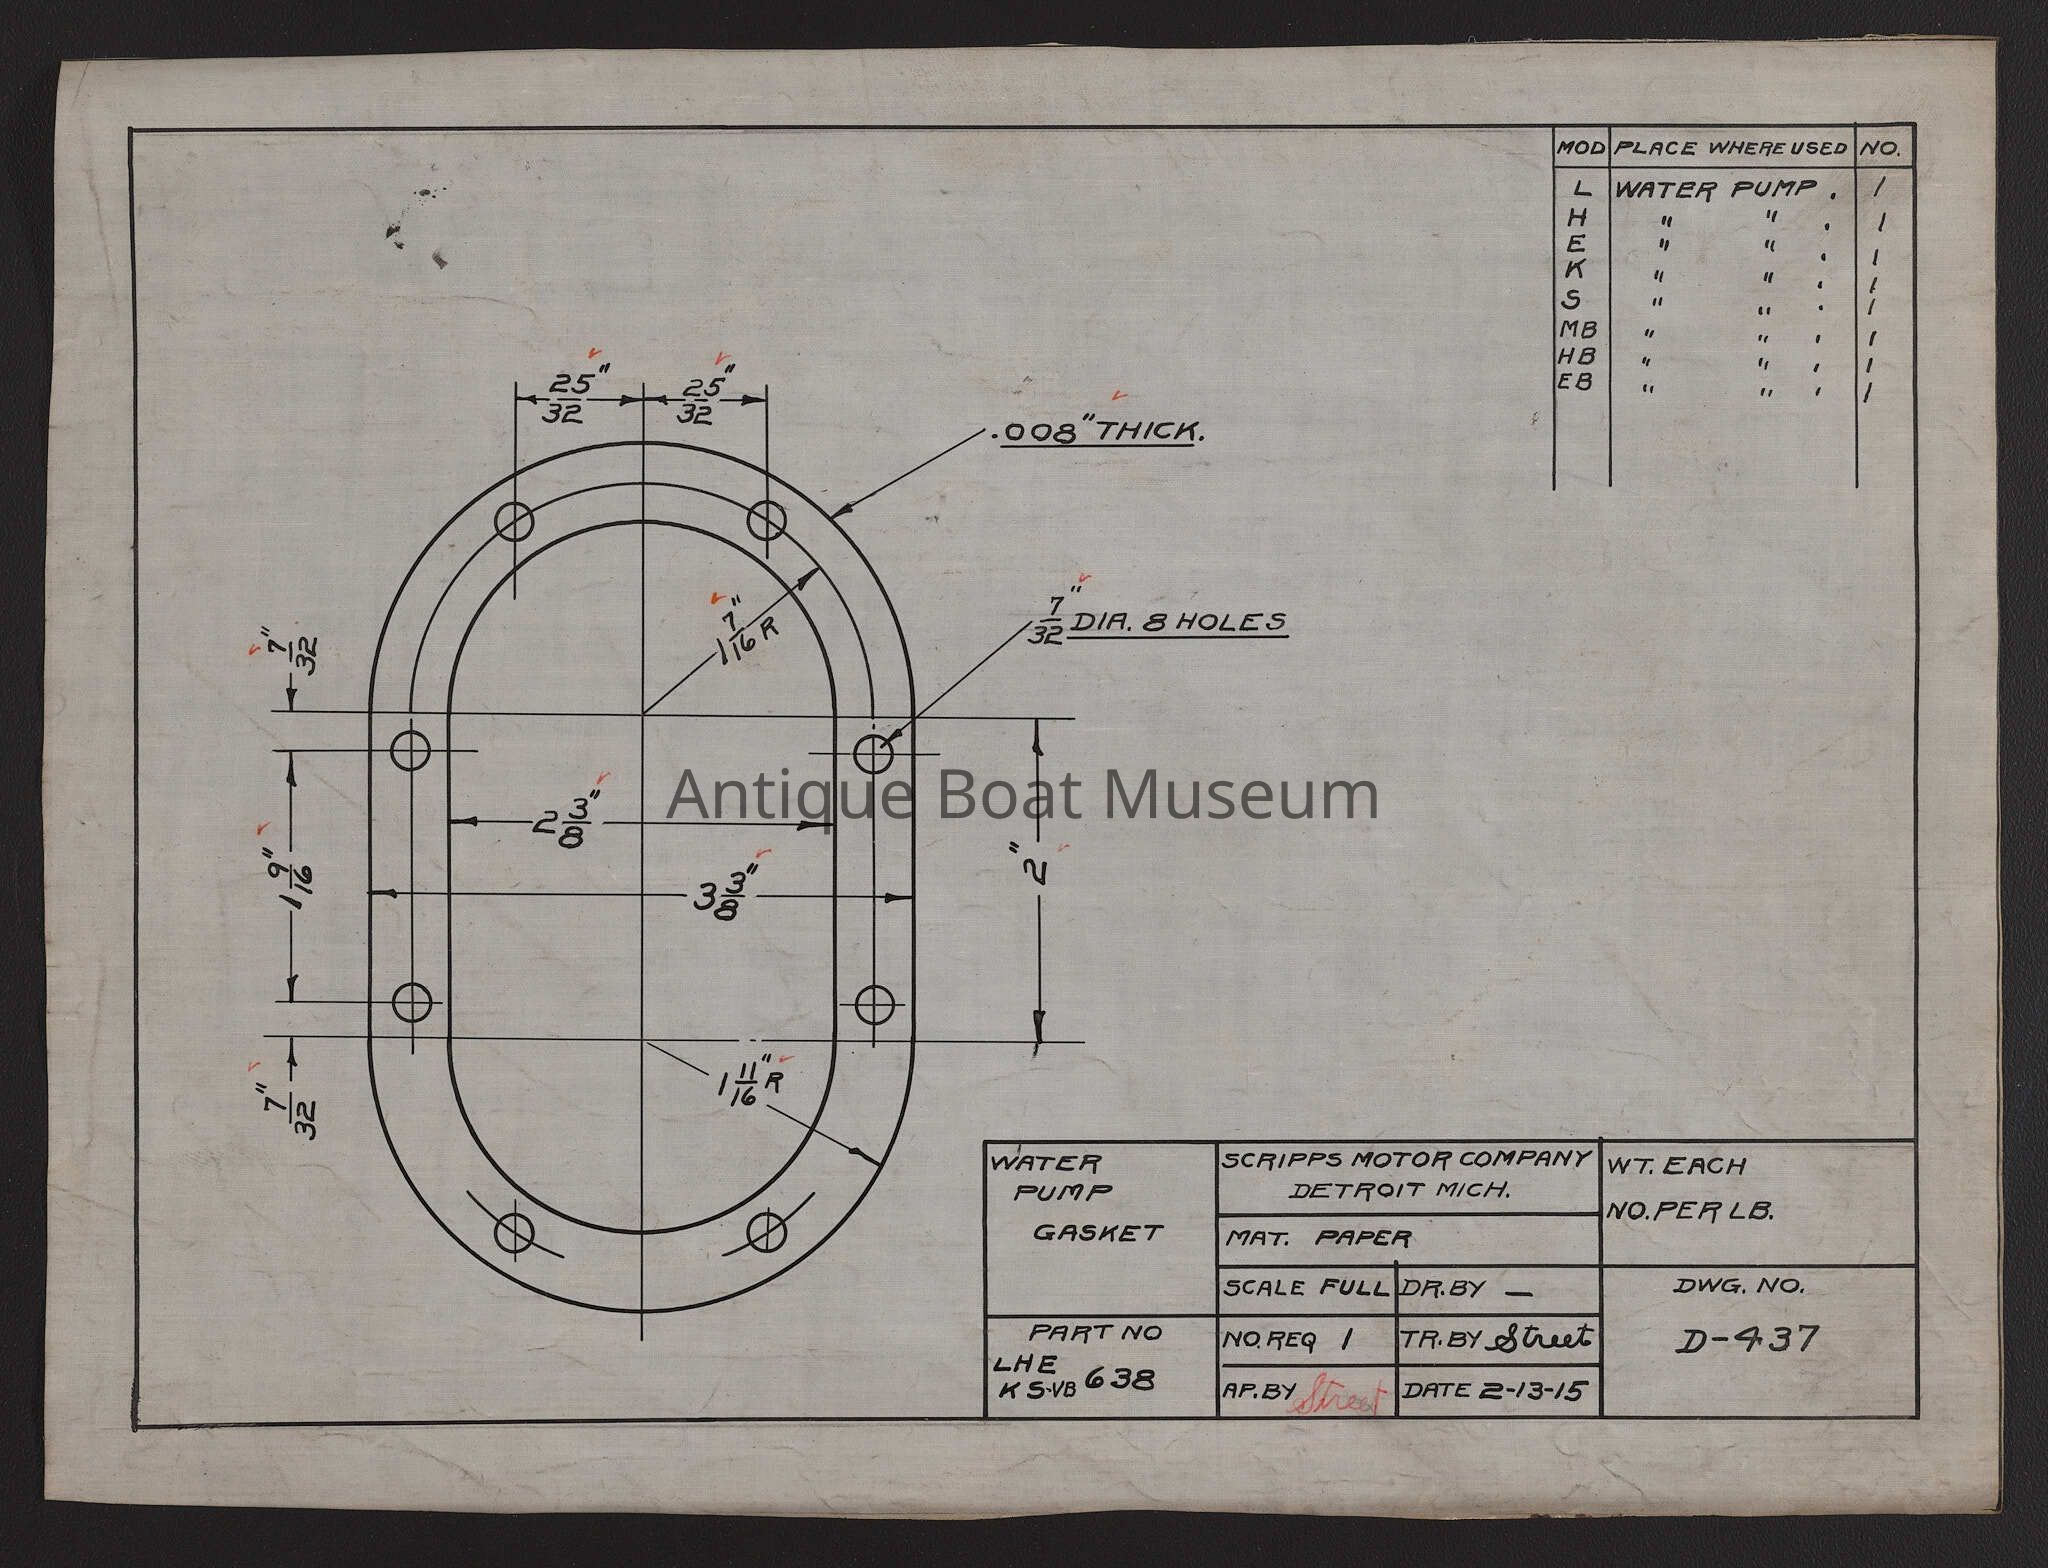 MOD PLACE WHERE USED NO.
L WATER PUMP . 1
H " " . 1
E " " . 1
K " " . 1
S " " . 1
MB " " . 1
HB " " . 1
EB " " . 1
25/32" 25/32"
.008" THICK.
7/32" DIA. 8 HOLES
1 7/16" R
7/32"
2 3/8"
Antique Boat Museum
1 9/16"
3 3/8"
2"
1 11/16" R
7/32"
WATER
PUMP
GASKET
PART NO
LHE
KS-VB 638
SCRIPPS MOTOR COMPANY
DETROIT MICH.
MAT. PAPER
SCALE FULL DR. BY —
NO. REQ 1 TR. BY Street
AP. BY Street DATE 2-13-15
WT. EACH
NO. PER LB.
DWG. NO.
D-437